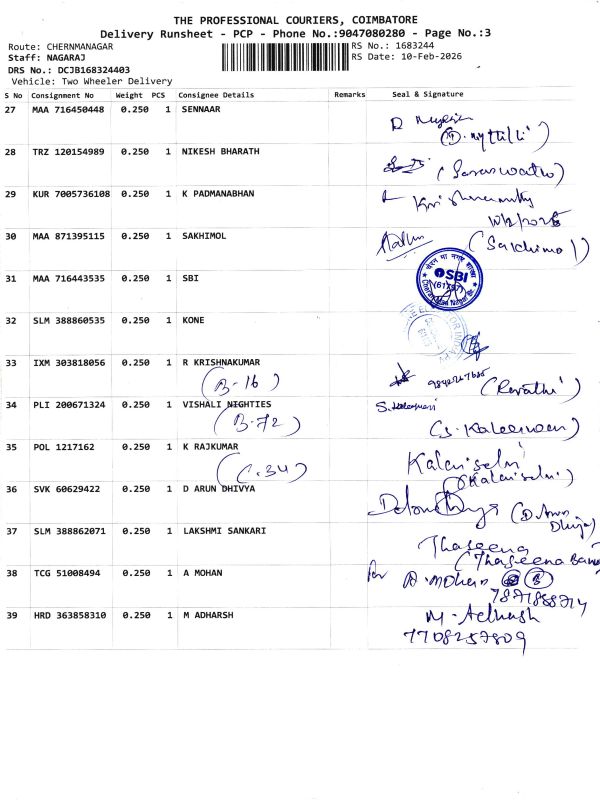 THE PROFESSIONAL COURIERS, COIMBATORE
Delivery Runsheet - PCP - Phone No.:9047080280 - Page No.:3
Route: CHERNMANAGAR RS No.: 1683244
Staff: NAGARAJ RS Date: 10-Feb-2026
DRS No.: DCJB168324403
Vehicle: Two Wheeler Delivery
S No Consignment No Weight PCS Consignee Details Remarks Seal & Signature
27 MAA 716450448 0.250 1 SENNAAR
28 TRZ 120154989 0.250 1 NIKESH BHARATH
(Saraswathi)
29 KUR 7005736108 0.250 1 K PADMANABHAN
30 MAA 871395115 0.250 1 SAKHIMOL
(Sakhimol)
31 MAA 716443535 0.250 1 SBI
SBI
32 SLM 388860535 0.250 1 KONE
33 IXM 303818056 0.250 1 R KRISHNAKUMAR
(B-16) (Revathi)
34 PLI 200671324 0.250 1 VISHALI NIGHTIES
(B-72)
35 POL 1217162 0.250 1 K RAJKUMAR
(C.34) Kalaiselvi
(Kalaiselvi)
36 SVK 60629422 0.250 1 D ARUN DHIVYA
(D.Arun
37 SLM 388862071 0.250 1 LAKSHMI SANKARI
Thaseena
(Thaseena Banu
38 TCG 51008494 0.250 1 A MOHAN
For A.Mohan
7871888714
39 HRD 363858310 0.250 1 M ADHARSH
M. Adharsh
7708257809